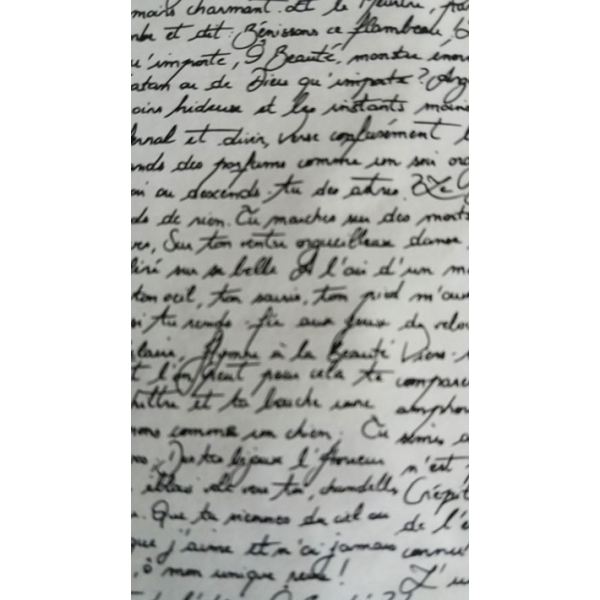 mains charmant. Et le Meurtre, pa
mbe et dit: Bénissons ce flambeau, Ô
u'importe, Ô Beauté, monstre énor
atan ou de Dieu qu'importe? Ang
oins hideux et les instants moins
fernal et divin, verse confusément l
ands des parfums comme un soir ora
ou descends-tu des astres? Le
de rien. Tu marches sur des morts
Sur ton ventre orgueilleux danse
sur sa belle A l'air d'un mo
ton oeil, ton souris, ton pied m'ouv
si tu rends - fée aux yeux de velou
laire, Hymne à la Beauté Viens-
t l'on peut pour cela te comparer
et ta bouche une amphore
comme un chien. Tu semes
De tes bijoux l'Horreur n'est
ébloui vole vers toi, chandelle, Crépit
Que tu viennes du ciel ou de l'e
que j'aime et n'ai jamais connu?
ô mon unique reine! L'u